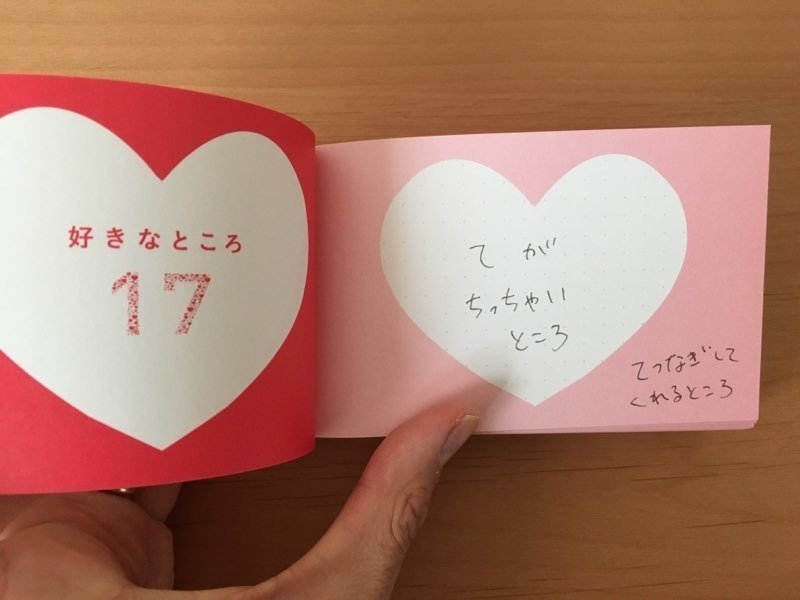 好きなところ
17
てが
ちっちゃい
ところ
てつなぎして
くれるところ